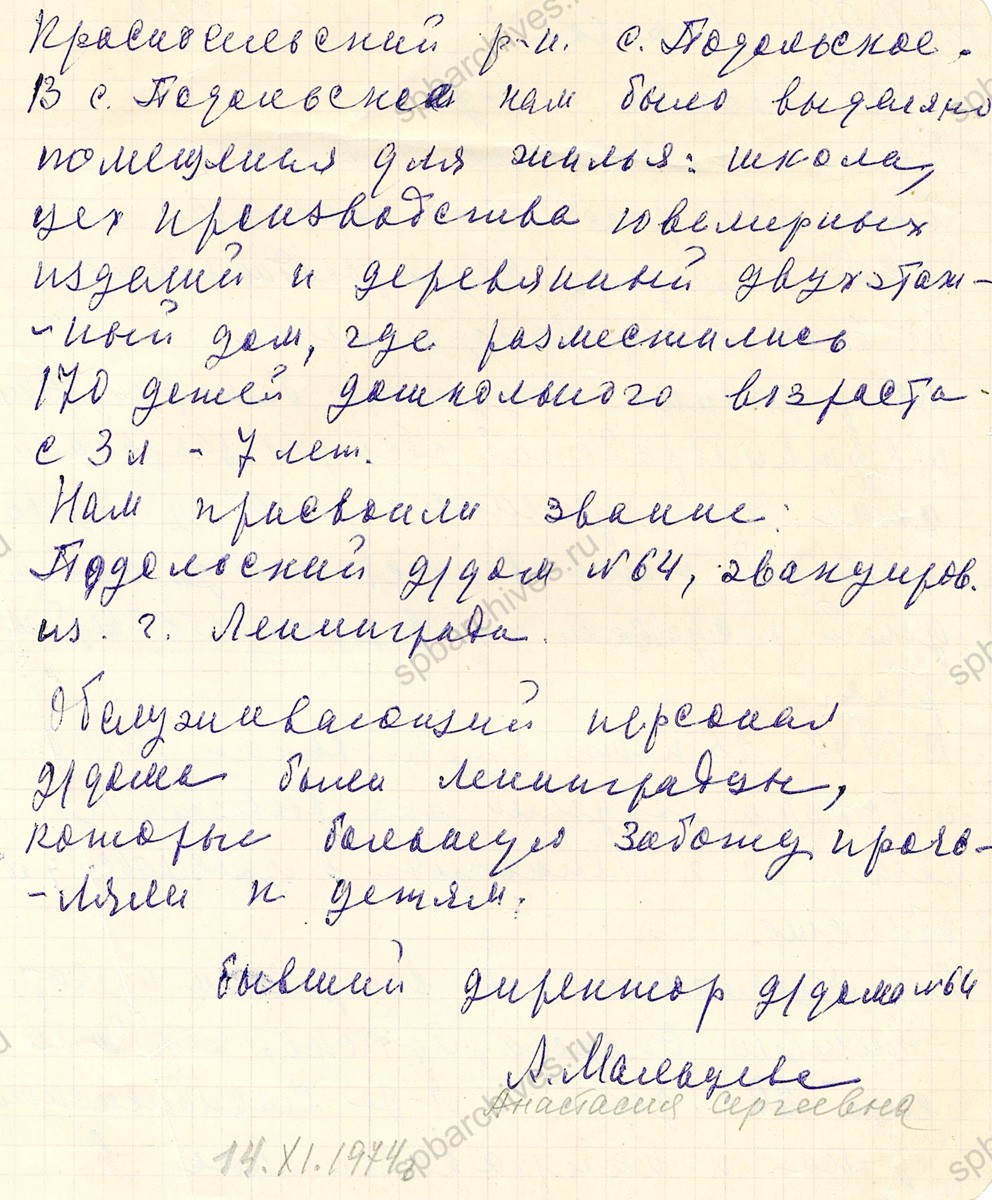 Красносельский р-н. с. Подольское.
В с. Подольское нам было выделяно
помещения для жилья: школа,
цех производства ювелирных
изделий и деревянный двухэтаж-
-ный дом, где разместились
170 детей дошкольного возраста
с 3 л - 7 лет.
Нам присвоили звание:
Подольский д/дом №64, эвакуиров.
из. г. Ленинграда.
Обслуживающий персонал
д/дома были Ленинградцы,
которые большую заботу прояв-
-ляли к детям.
бывший директор д/дома №64
А. Мальцева
Анастасия Сергеевна
14.XI.1974г
spbarchives.ru